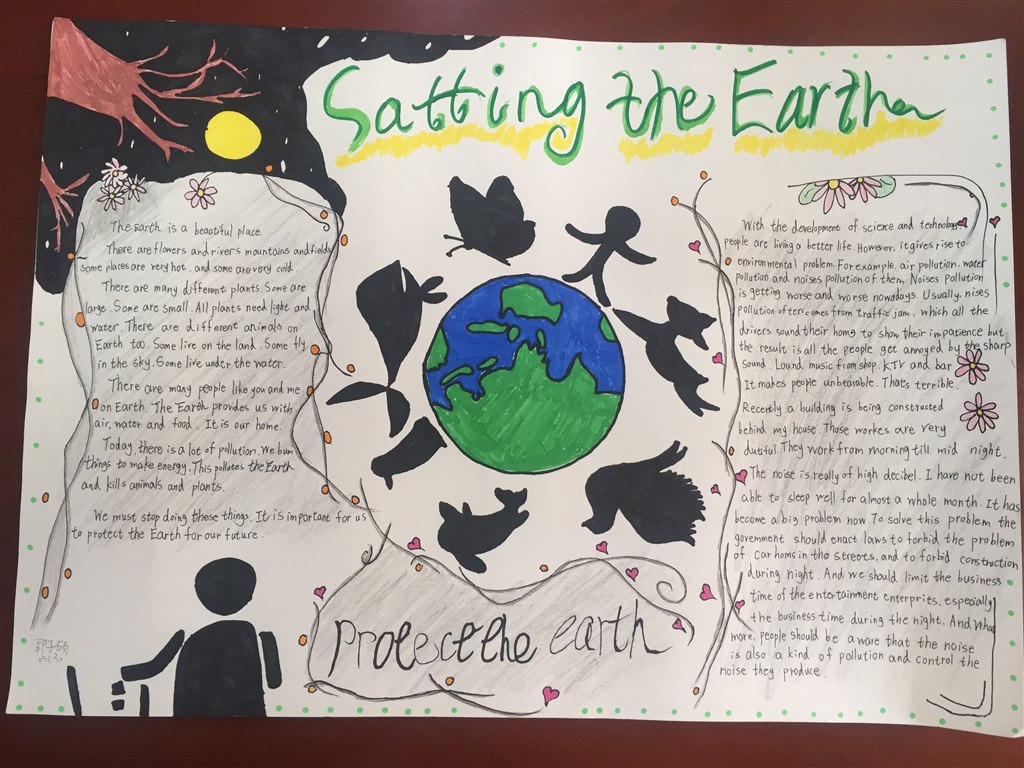 Satting the Earth
The Earth is a beautiful place.
There are flowers and rivers mountains and fields
some places are very hot. and some are very cold.
There are many different plants. Some are
large. Some are small. All plants need light and
water. There are different animals on
Earth too. Some live on the land. Some fly
in the sky. Some live under the water.
There are many people like you and me
on Earth. The Earth provides us with
air, water and food. It is our home.
Today, there is a lot of pollution. We burn
things to make energy. This pollutes the Earth
and kills animals and plants.
We must stop doing these things. It is important for us
to protect the Earth for our future.
Protect the earth
With the development of science and technology
people are living a better life. However. it gives rise to
environmental problem. For example. air pollution. water
pollution and noises pollution of them. Noises pollution
is getting worse and worse nowadays. Usually. nises
pollution often comes from traffic jam. which all the
drivers sound their horng to show their impatience but
the result is all the people get annoyed by the sharp
sound. Lound music from shop. KTV and bar
It makes people unbearable. Thats terrible.
Recently a building is being constructed
behind my house. Those workes are very
dutiful. They work from morning till mid night.
The noise is really of high decibel. I have not been
able to sleep well for almost a whole month. It has
become a big problem now. To solve this problem the
government should enact laws to forbid the problem
of car horns in the streets, and to forbid construction
during night. And we should limit the business
time of the entertainment enterpries, especially
the business time during the night. And what
more. people should be aware that the noise
is also a kind of pollution and control the
noise they produce.